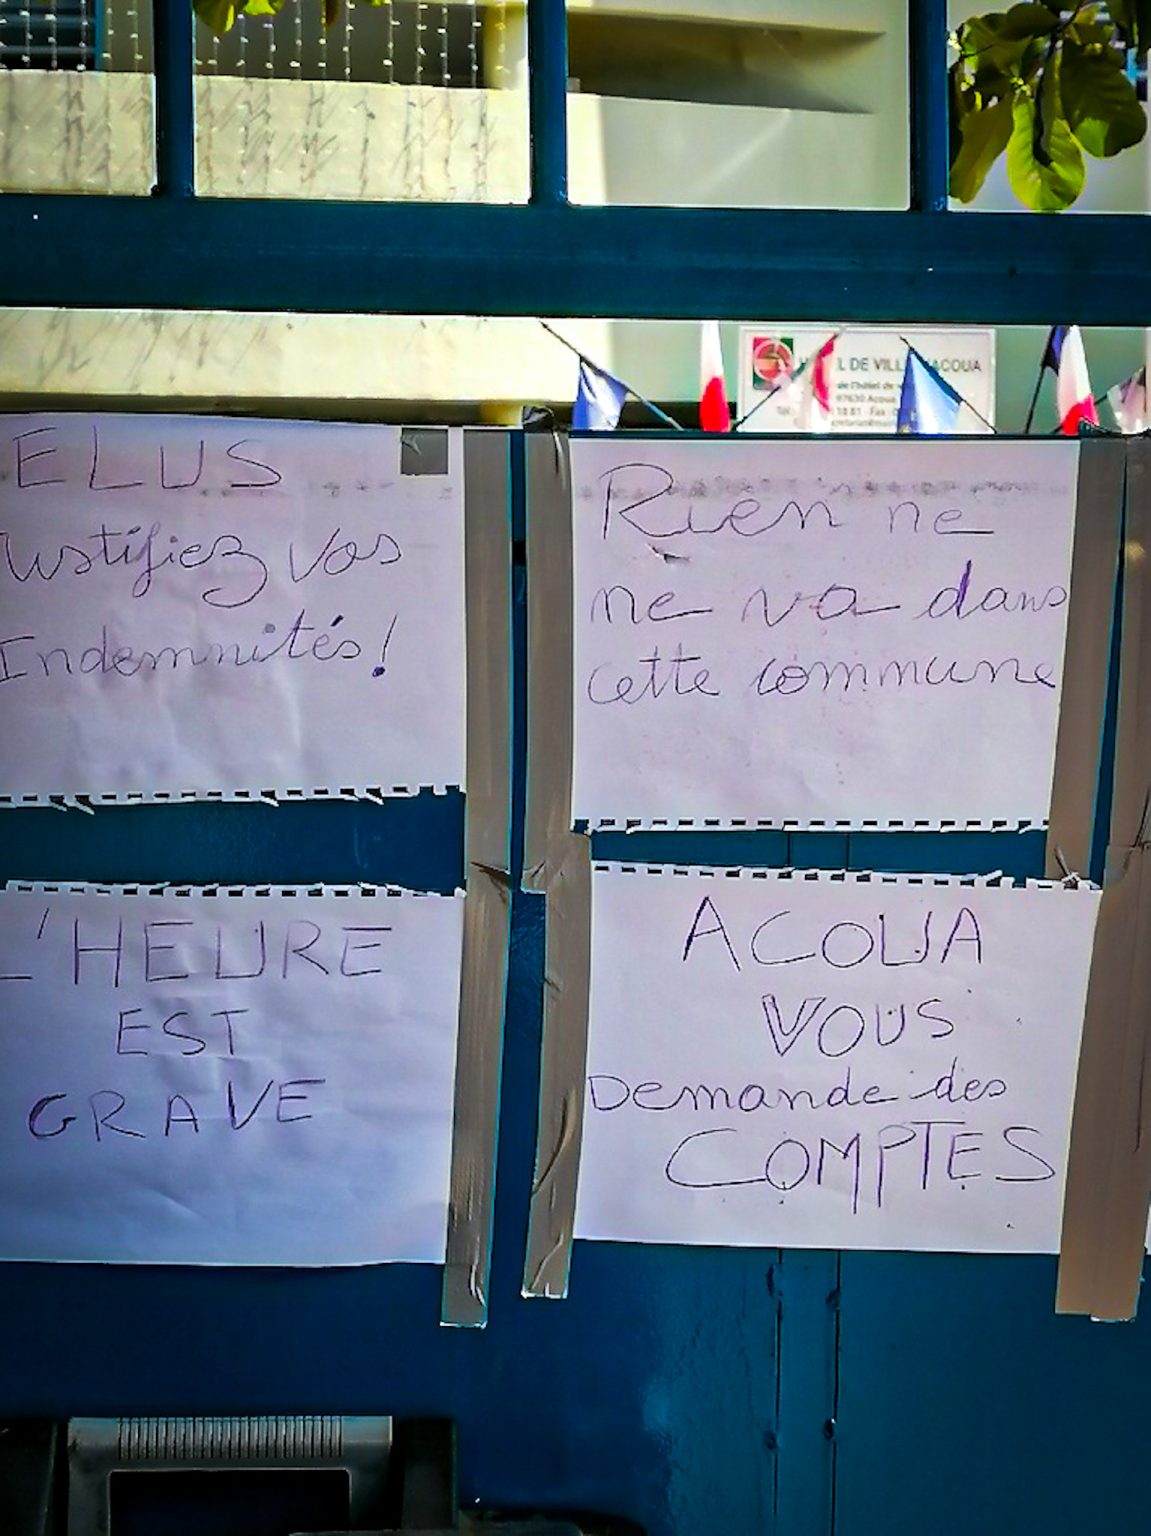 DE VILLE
ACOUA
97630 Acoua
ELUS
Justifiez vos
Indemnités!
Rien ne
ne va dans
cette commune
L'HEURE
EST
GRAVE
ACOUA
VOUS
Demande des
COMPTES